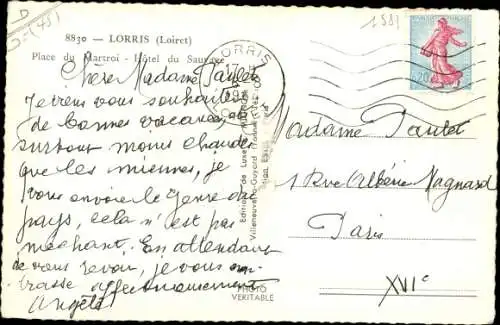 8830 — LORRIS (Loiret)
Place du Martroi - Hôtel du Sauvage
Chère Madame Paulet
Je viens vous souhaiter
de bonnes vacances,
surtout moins chaudes
que les miennes, je
vous envoie le genre du
pays, cela n'est pas
méchant. En attendant
de vous revoir, je vous em-
brasse affectueusement
Angèle
LORRIS
17 H
Editions de Luxe
Villeneuve-la-Guyard (Yonne)
PHOTO
VERITABLE
0,20
Madame Paulet
1 Rue Albéric Magnard
Paris
XVIe